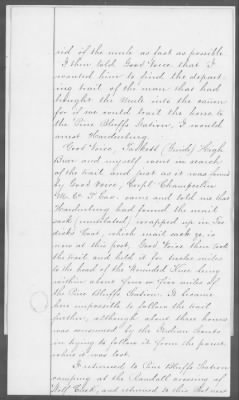 rid of the mule as fast as possible
I then told Good Voice that I
wanted him to find the depart
ing trail of the man that had
brought the mule into the cañon
for if we could trail the horse to
the Pine Bluffs Station, I would
arrest Hardenburg.
Good Voice, Talkett (Guide) High
Bear and myself went in search
of the trail and just as it was found
by Good Voice, Capt Chamberlin
Mr. came and told me that
Hardenburg had found the mail
sack, (mutilated) wrapped up in
sack, which mail sack is
now at this post. Good Voice then took
the trail and held it for twelve miles
to the head of the Wounded Knee being
within about four or five miles of
the Pine Bluffs Station. It became
here impossible to follow the trail
further, although about three hours
was consumed by the Indian Scouts
in trying to follow it from the point
where it was lost.
I returned to Pine Bluffs Station
camping at the Randall crossing of
Wolf Creek, and returned to this Post now